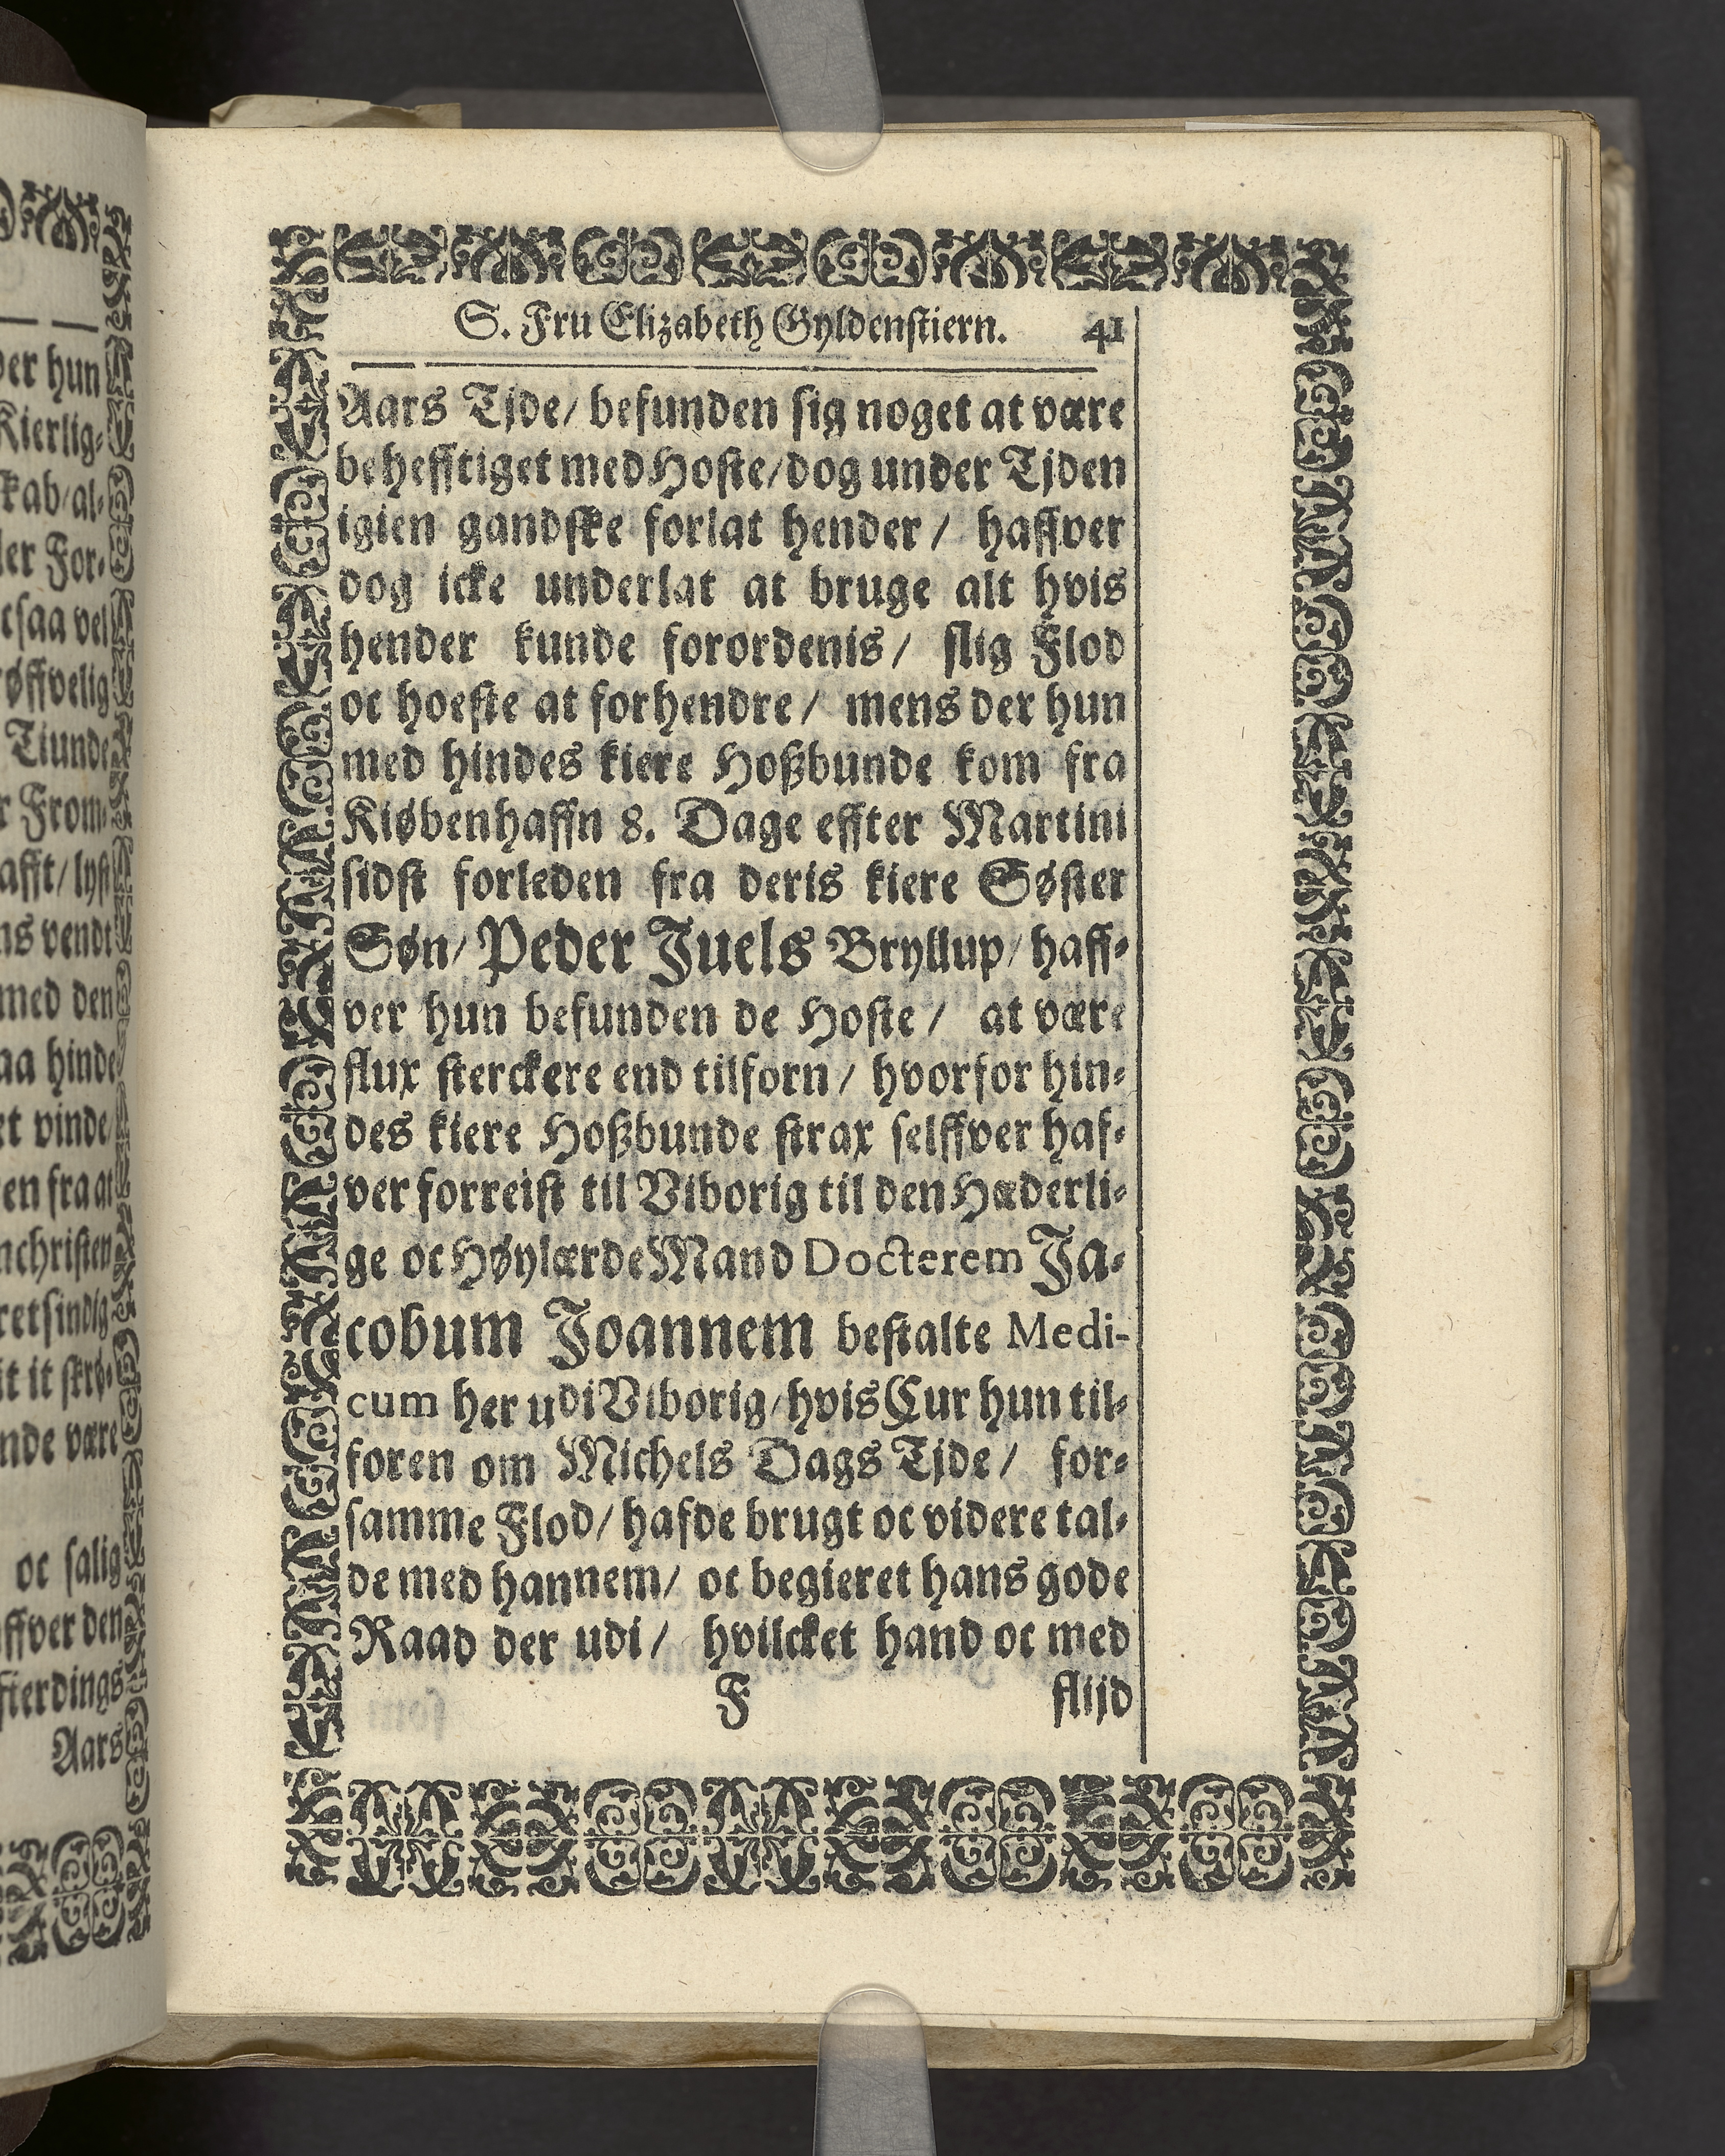 der hun
Kierlig-
skab/al-
ler For-
tsaa vel
øffvelig
Tiunde
r From-
afft/lyst
ns vendt
med den
aa hinde
et vinde
en fra at
nchristen
retsindig
it it skrø-
nde være
oc salig
ffver den
fterdings
Aars
S. Fru Elizabeth Gyldenstiern. 41
Aars Tjde/ befunden sig noget at være
behefftiget med Hoste/dog under Tjden
igien gandske forlat hender/ haffver
dog icke underlat at bruge alt hvis
hender kunde forordenis/ slig Flod
oc hoeste at forhendre/ mens der hun
med hindes kiere Hoßbunde kom fra
Kiøbenhaffn 8. Dage effter Martini
sidst forleden fra deris kiere Søster
Søn/ Peder Juels Bryllup/ haff-
ver hun befunden de Hoste/ at være
flux sterckere end tilforn/ hvorfor hin-
des kiere Hoßbunde strax selffver haf-
ver forreist til Viborig til den Hæderli-
ge oc Høylærde Mand Docterem Ja-
cobum Joannem bestalte Medi-
cum her udi Viborig/hvis Cur hun til-
foren om Michels Dags Tjde/ for-
samme Flod/ hafde brugt oc videre tal-
de med hannem/ oc begieret hans gode
Raad der udi/ hvilcket hand oc med
F flijd